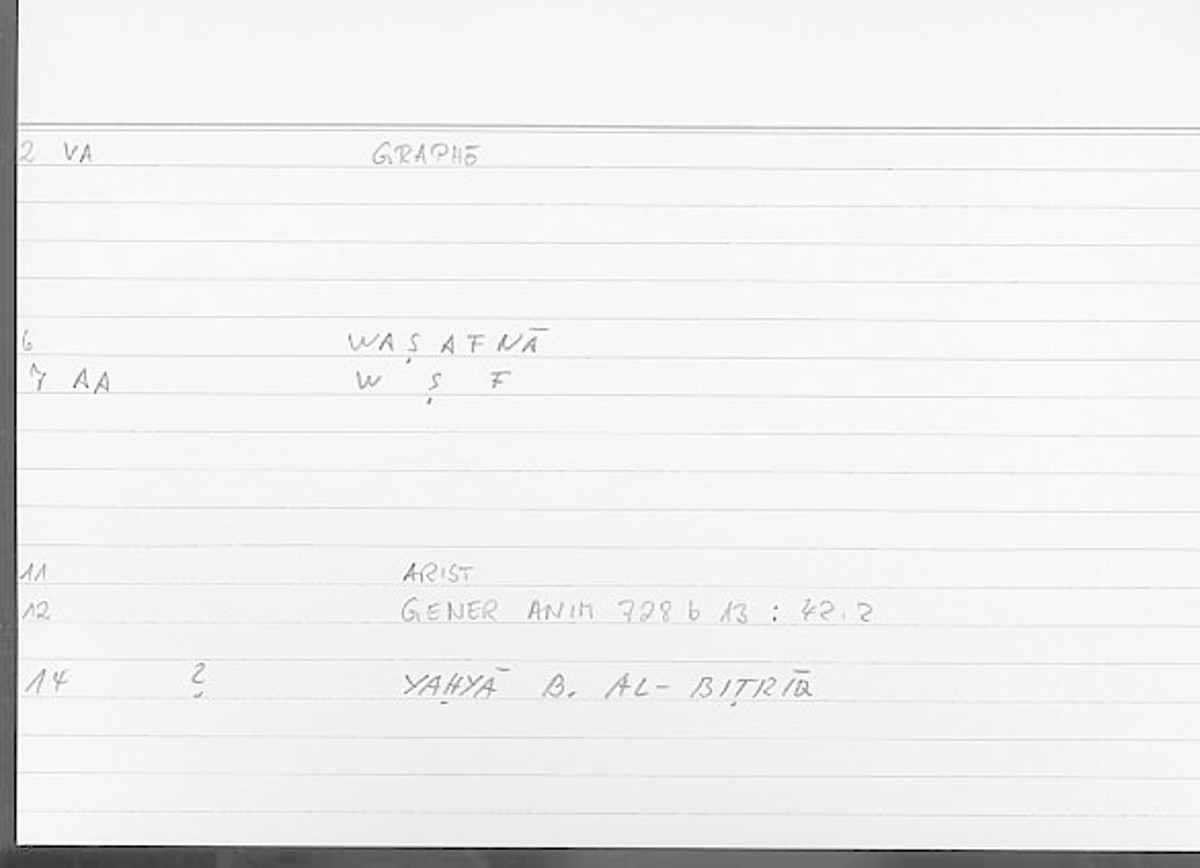 2 VA GRAPHĒ
6 WAṢAFNĀ
7 AA W Ṣ F
11 ARIST
12 GENER ANIM 728 b 13 : 42.2
14 ? YAḤYĀ B. AL-BIṬRĪQ